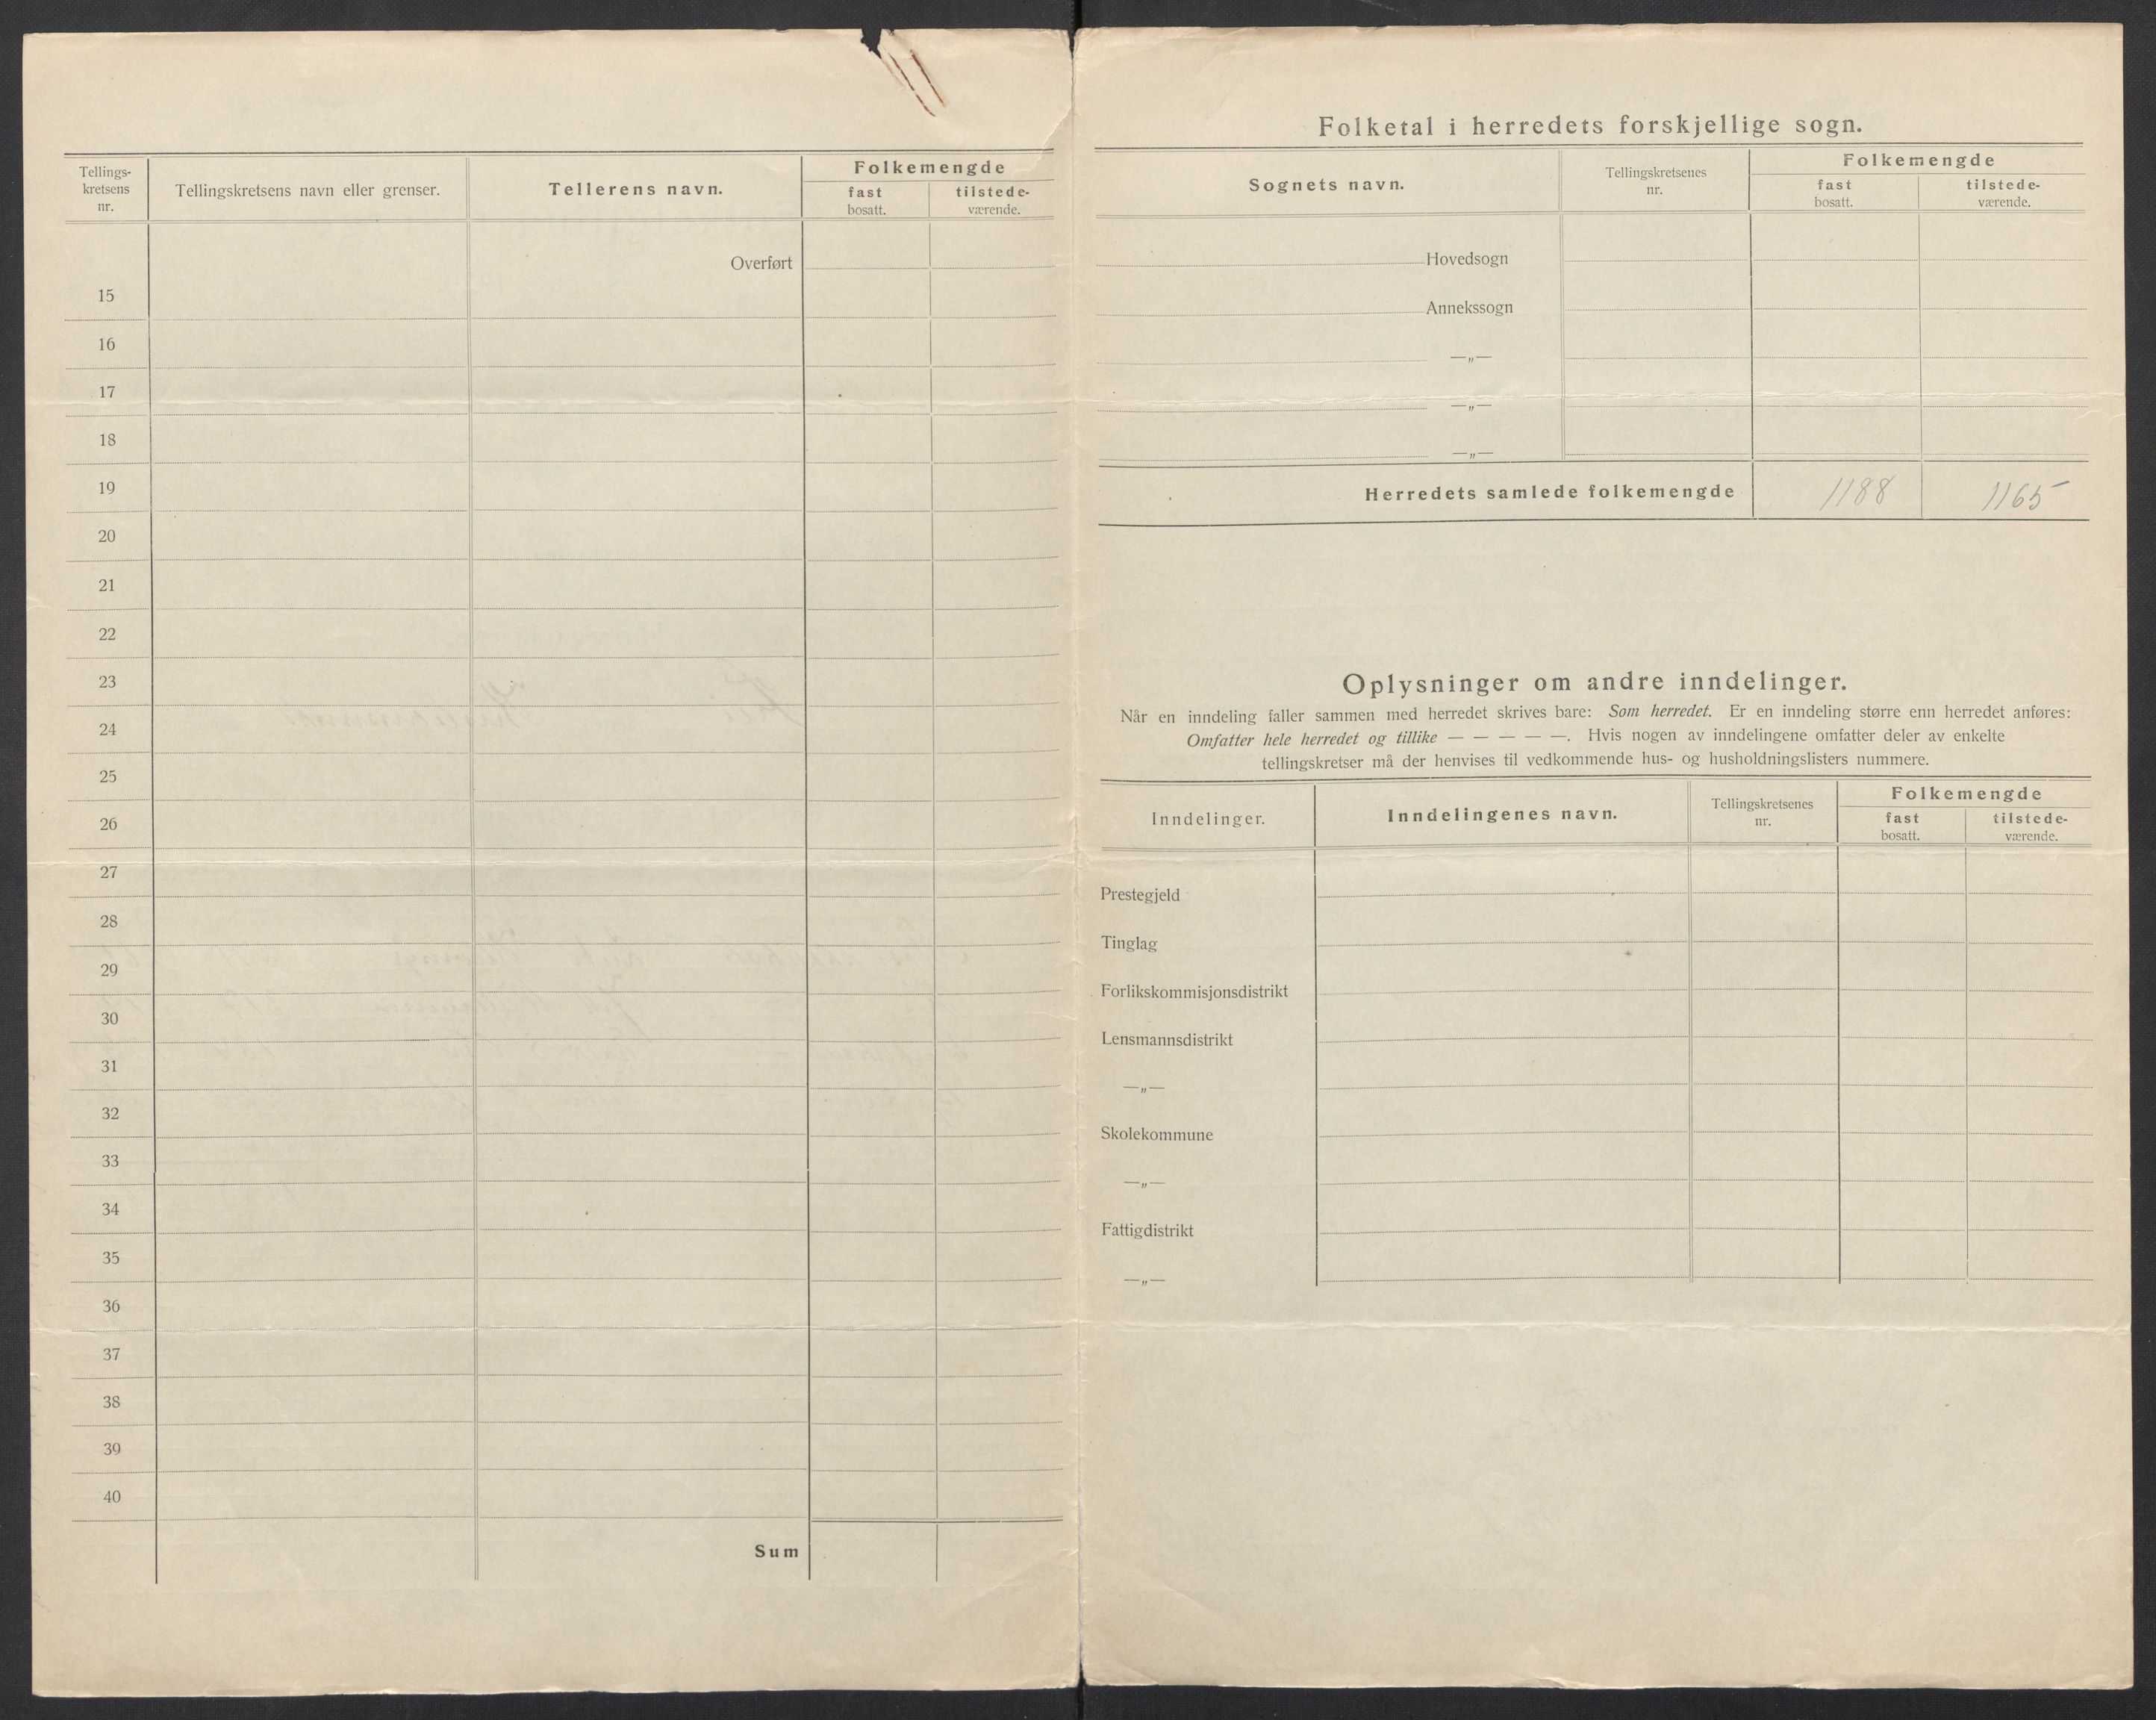 Tellings-
kretsens
nr.
Tellingskretsens navn eller grenser.
Tellerens navn.
Folkemengde
fast
bosatt.
tilstede-
værende.
Overført
15
16
17
18
19
20
21
22
23
24
25
26
27
28
29
30
31
32
33
34
35
36
37
38
39
40
Sum
Folketal i herredets forskjellige sogn.
Sognets navn.
Tellingskretsenes
nr.
Folkemengde
fast
bosatt.
tilstede-
værende.
Hovedsogn
Annekssogn
—„—
—„—
—„—
Herredets samlede folkemengde 1188 1165
Oplysninger om andre inndelinger.
Når en inndeling faller sammen med herredet skrives bare: Som herredet. Er en inndeling større enn herredet anføres:
Omfatter hele herredet og tillike — — — — —. Hvis nogen av inndelingene omfatter deler av enkelte
tellingskretser må der henvises til vedkommende hus- og husholdningslisters nummere.
Inndelinger.
Inndelingenes navn.
Tellingskretsenes
nr.
Folkemengde
fast
bosatt.
tilstede-
værende.
Prestegjeld
Tinglag
Forlikskommisjonsdistrikt
Lensmannsdistrikt
—„—
Skolekommune
—„—
Fattigdistrikt
—„—